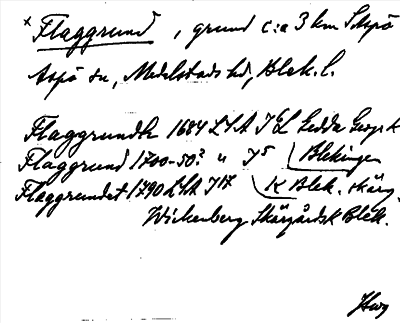 * Flaggrund, grund c:a 3 km S Aspö
Aspö sn, Medelstads hd, Blek. l.
Flaggrundh 1684 LSA I 61 Gedda Geogr. k
Flaggrund 1700-50? " I 5 Blekingen
Flaggrundet 1790 LSA I 17 K Blek. skärg.
Wickenberg Skärgårdsk Blek.